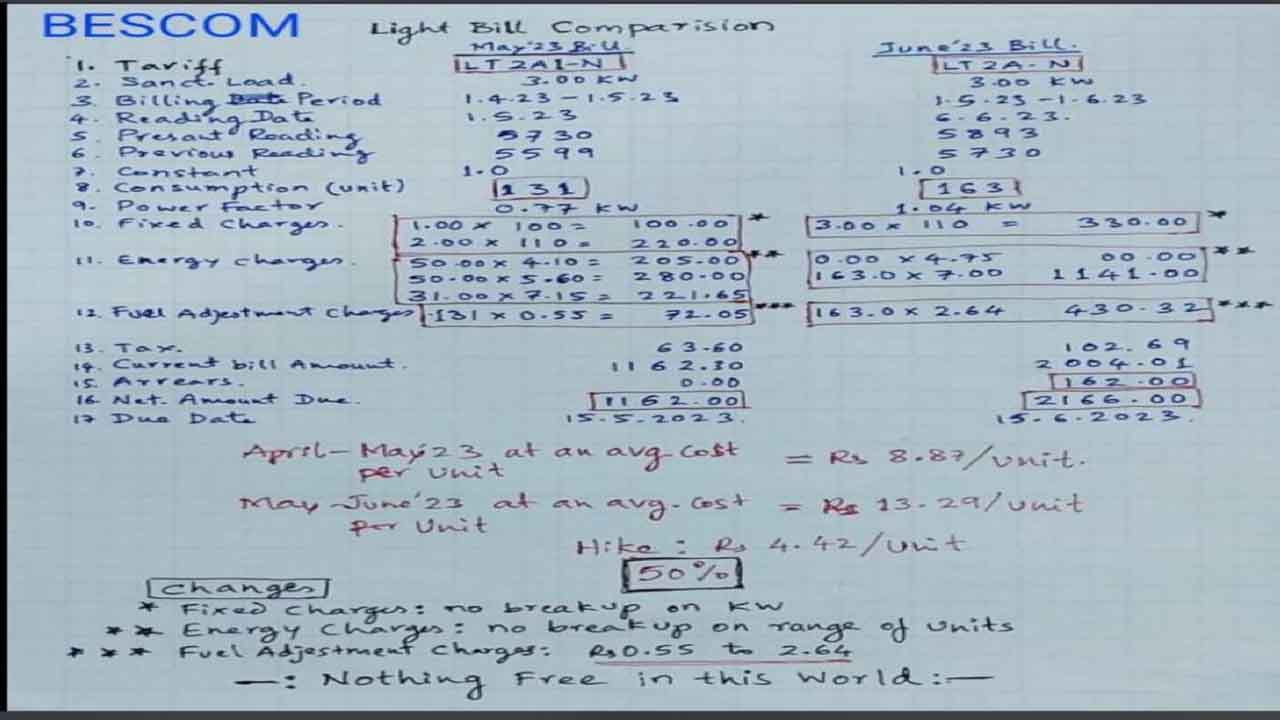 BESCOM Light Bill Comparision
May'23 Bill June'23 Bill.
1. Tariff LT2A1-N LT2A-N
2. Sanct. Load. 3.00 KW 3.00 KW
3 Billing Period 1.4.23 - 1.5.23 1.5.23 - 1.6.23
4. Reading Date 1.5.23 6.6.23.
5. Presant Reading 5730 5893
6. Previous Reading 5599 5730
7. Constant 1.0 1.0
8. Consumption (unit) 131 163
9. Power Factor 0.77 KW 1.04 KW
10. Fixed Charges. 1.00 x 100 = 100.00 * 3.00 x 110 = 330.00 *
2.00 x 110 = 220.00
11. Energy Charges. 50.00 x 4.10 = 205.00 ** 0.00 x 4.75 00.00 **
50.00 x 5.60 = 280.00 163.0 x 7.00 1141.00
31.00 x 7.15 = 221.65
12. Fuel Adjestment Charges 131 x 0.55 = 72.05 *** 163.0 x 2.64 430.32 ***
13. Tax. 63.60 102.69
14. Current bill Amount. 1162.30 2004.01
15. Arrears. 0.00 162.00
16 Net. Amount Due. 1162.00 2166.00
17 Due Date 15.5.2023. 15.6.2023.
April - May'23 at an avg. cost = Rs 8.87/unit.
per unit
May - June'23 at an avg. cost = Rs 13.29/unit
per Unit
Hike : Rs 4.42/unit
50%
Changes
* Fixed Charges: no breakup on KW
** Energy Charges: no breakup on range of units
*** Fuel Adjestment Charges: Rs 0.55 to 2.64
—: Nothing Free in this World :—